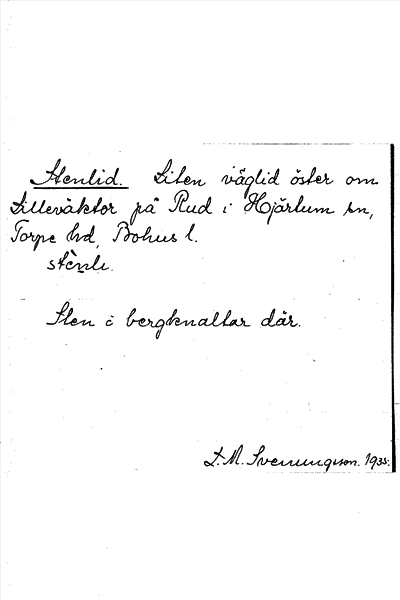 Stenlid. Liten väglid öster om
Lilleväktor på Rud i Hjärtum sn,
Torpe hd, Bohus l.
stè̀nli.
Sten i bergknallar där.
L. M. Svenungsson. 1935.